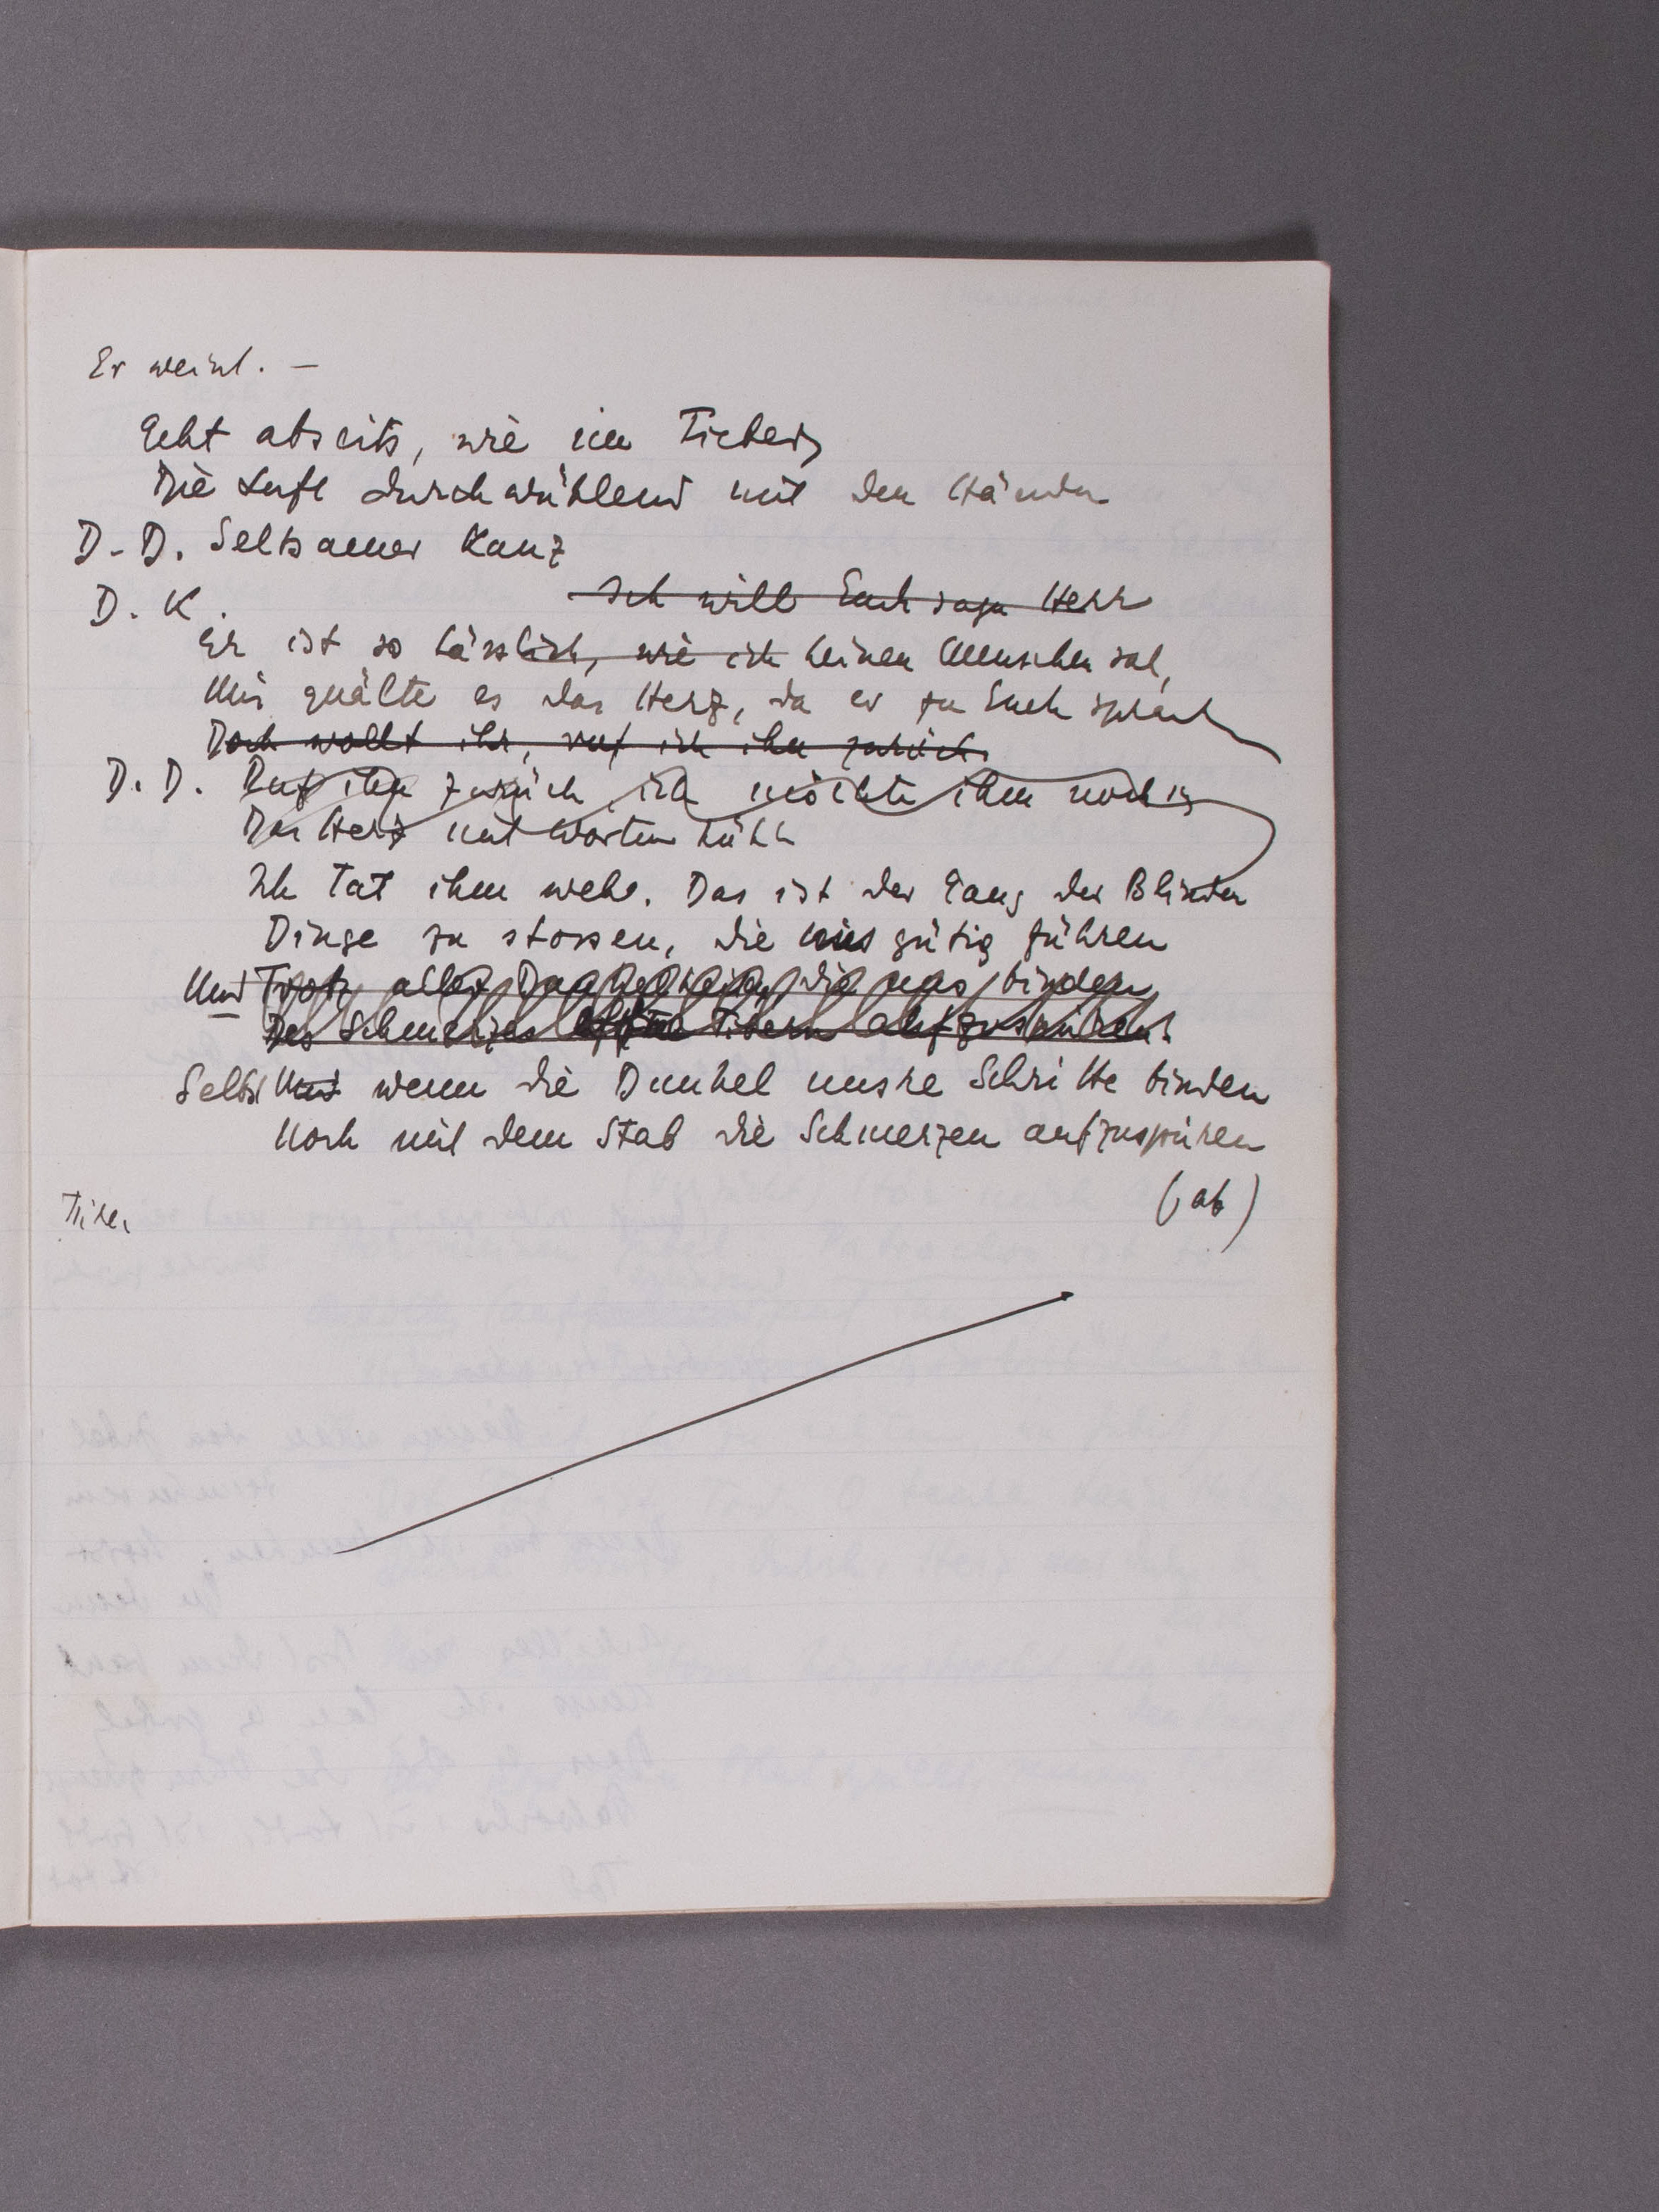 Er weint. —
Geht abseits, wie im Fieber,
Die Luft durchwühlend mit den Händen
D. D. Seltsamer Kauz
D. K. Ich will Euch sagen Herr
Er ist so hässlich, wie ich keinen Menschen sah,
Mir quälte es das Herz, da er zu Euch sprach
Doch wollt ihr, ruf ich ihn zurück.
D. D. Ruf ihn zurück, ich möchte ihm noch
Das Herz mit Worten kühln
Ich tat ihm wehe. Das ist der Gang der Blinden
Dinge zu stossen, die uns gütig führen
Und Trotz aller die uns binden
Des Schmerzes Fibern aufzuspüren
Selbst Und wenn die Dunkel unsre Schritte binden
Noch mit dem Stab die Schmerzen aufzuspüren
(ab)